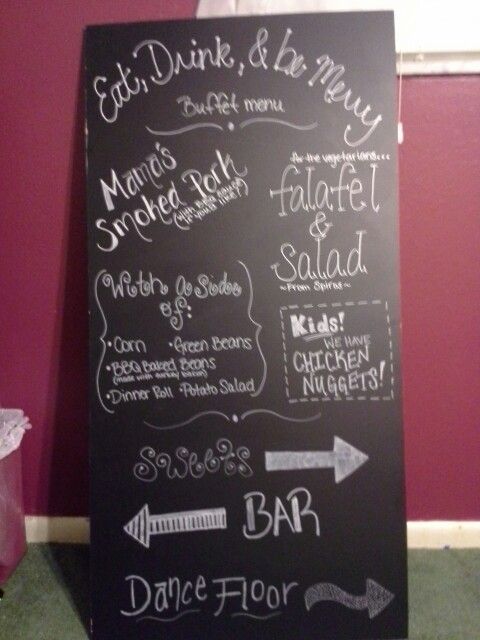 Eat, Drink, & be Merry
Buffet menu
Mama's
Smoked Pork
(with BBQ sauce
if you'd like!)
for the vegetarians...
falafel
&
Salad
~From Spiros~
With a side
of:
•Corn •Green Beans
•BBQ Baked Beans
(made with turkey bacon)
•Dinner Roll •Potato Salad
Kids!
WE HAVE
CHICKEN
NUGGETS!
Sweets
BAR
Dance Floor